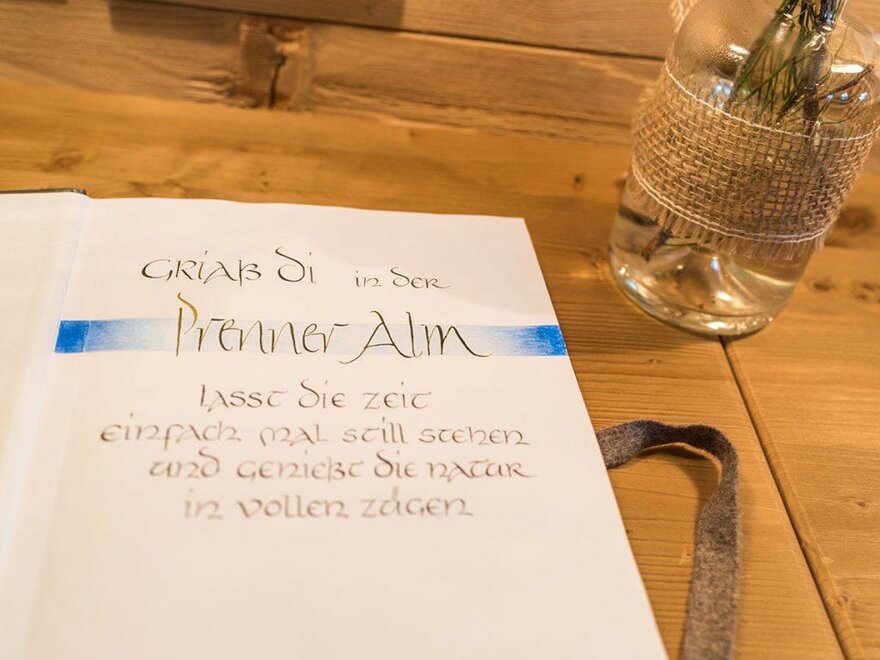 Griaß di in der
Prenner Alm
lasst die zeit
einfach mal still stehen
und genießt die natur
in vollen zügen